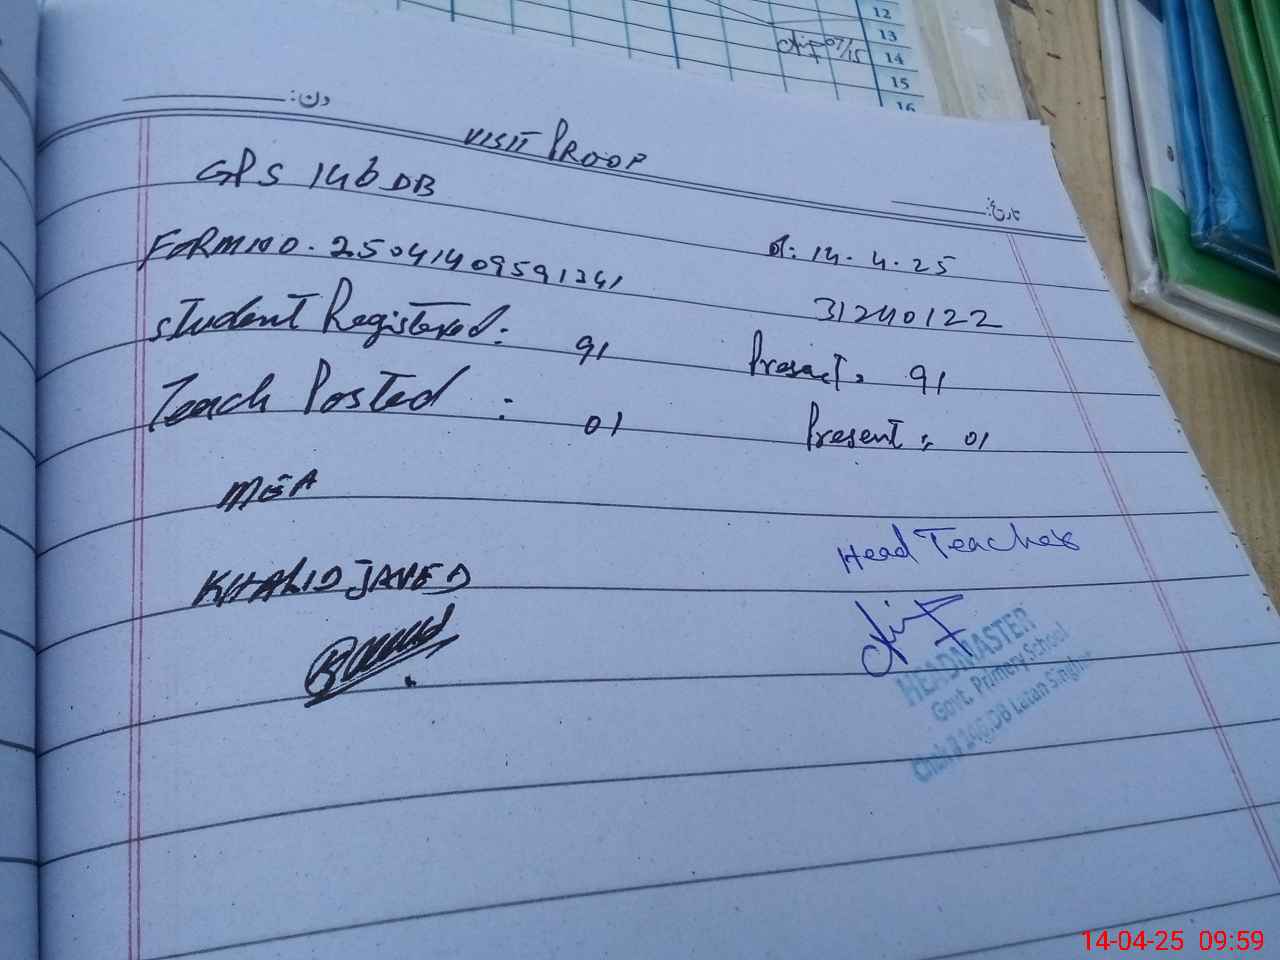 12
13
14
15
16
07/15
دن:
VISIT PROOF
GPS 146 DB
تاریخ:
FORM NO. 25041409591341
dt: 14.4.25
31240122
Student Registered: 91 Present: 91
Teach Posted : 01 Present: 01
MEA
Head Teacher
KHALID JAVED
HEADMASTER
Govt. Primary School
Chak # 146/DB Latan Singh
14-04-25 09:59